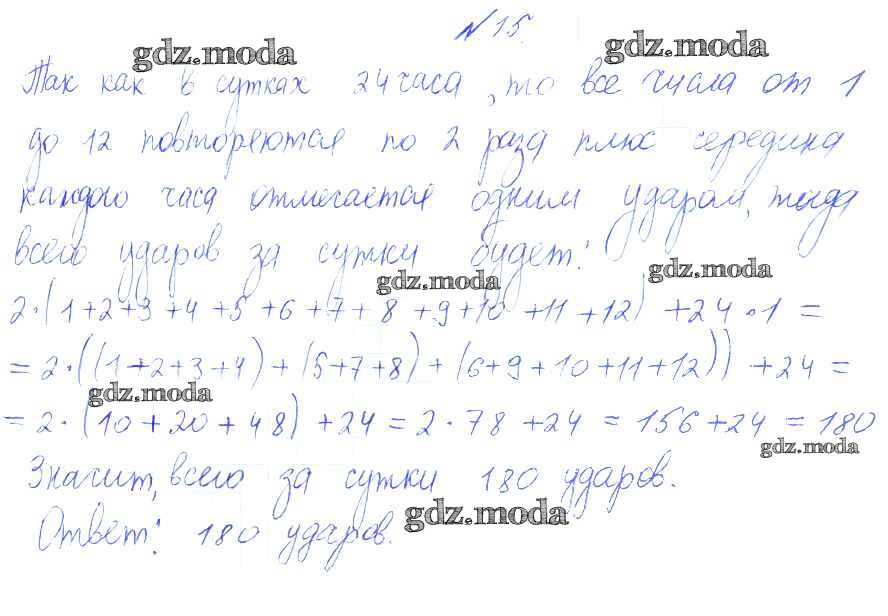 №15.
Так как в сутках 24 часа, то все числа от 1
до 12 повторяются по 2 раза плюс середина
каждого часа отмечается одним ударом, тогда
всего ударов за сутки будет:
2·(1+2+3+4+5+6+7+8+9+10+11+12)+24·1=
=2·((1+2+3+4)+(5+7+8)+(6+9+10+11+12))+24=
=2·(10+20+48)+24=2·78+24=156+24=180
Значит, всего за сутки 180 ударов.
Ответ: 180 ударов.
gdz.moda
gdz.moda
gdz.moda
gdz.moda
gdz.moda
gdz.moda
gdz.moda